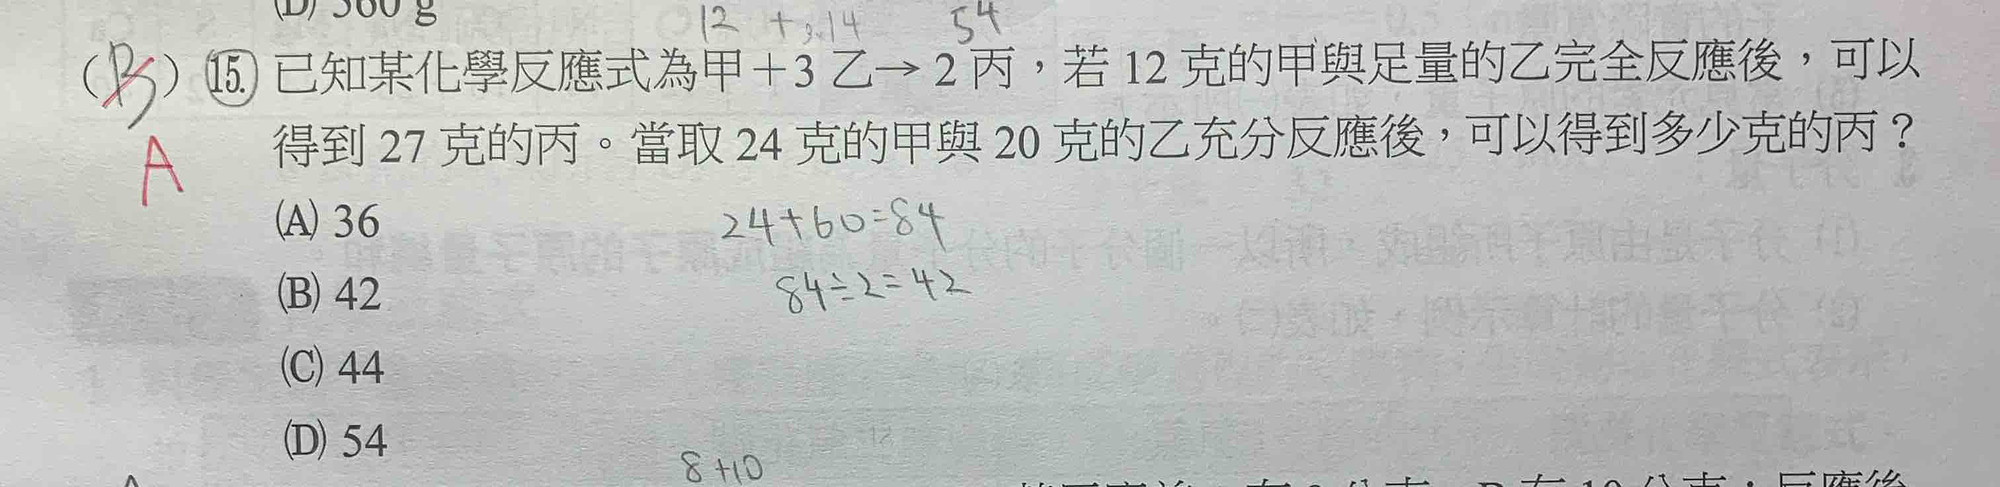 (D) 560 g
12 + 3.14 54
(B) 15. 已知某化學反應式為甲＋3 乙→ 2 丙，若 12 克的甲與足量的乙完全反應後，可以
A 得到 27 克的丙。當取 24 克的甲與 20 克的乙充分反應後，可以得到多少克的丙？
(A) 36
24+60=84
(B) 42
84÷2=42
(C) 44
(D) 54
8+10